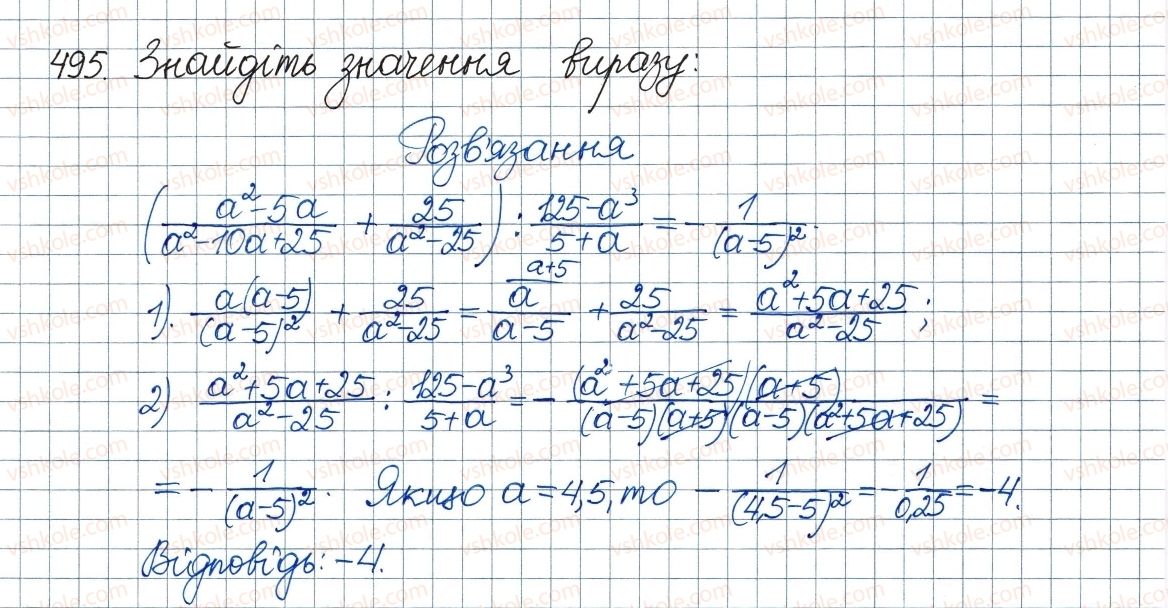 495. Знайдіть значення виразу:
Розв'язання
(a²-5a/a²-10a+25 + 25/a²-25) : 125-a³/5+a = -1/(a-5)².
1). a(a-5)/(a-5)² + 25/a²-25 = a/a-5 (a+5) + 25/a²-25 = a²+5a+25/a²-25;
2) a²+5a+25/a²-25 : 125-a³/5+a = -(a²+5a+25)(a+5)/(a-5)(a+5)(a-5)(a²+5a+25) =
= -1/(a-5)². Якщо a=4,5, то -1/(4,5-5)² = -1/0,25 = -4.
Відповідь: -4.